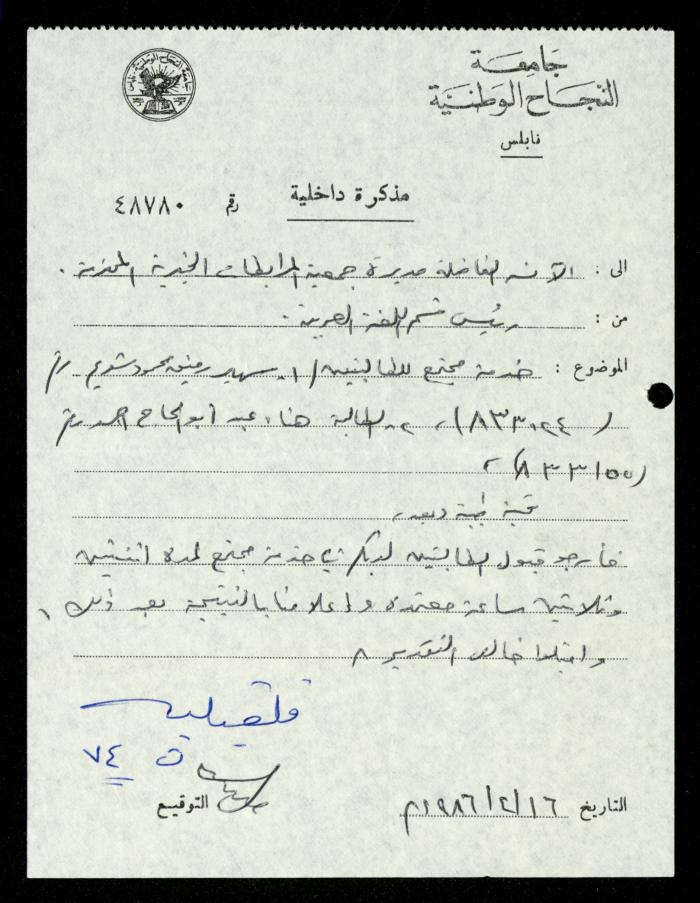 جامعة
النجاح الوطنية
نابلس
مذكرة داخلية رقم ٤٨٧٨٠
الى : الآنسة الفاضلة مديرة جمعية المرابطات الخيرية المحترمة .
من : رئيس قسم اللغة العربية .
الموضوع : خدمة مجتمع للطالبتين / ١. سهير محمود رقم
( ٨٣٣٠٢٤ ) ، ٢. الطالبة هناء عبد أبو الحاج احمد رقم
( ٨٣٣١٥٥ ) ،
تحية طيبة وبعد ،
فأرجو قبول الطالبتين لديكم في خدمة مجتمع لمدة اثنتين
وثلاثين ساعة معتمدة واعلامنا بالنتيجة بعد ذلك ،
واقبلوا خالص التقدير ،
قلقيلية
ن ٧٤
التاريخ ١٦/٢/١٩٨٦م التوقيع